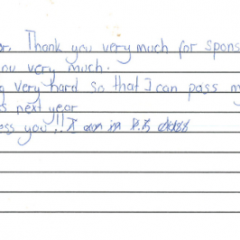 or. Thank you very much for spons
you very much.
g very hard so that I can pass m
s next year
ess you!! I am in P.5 class